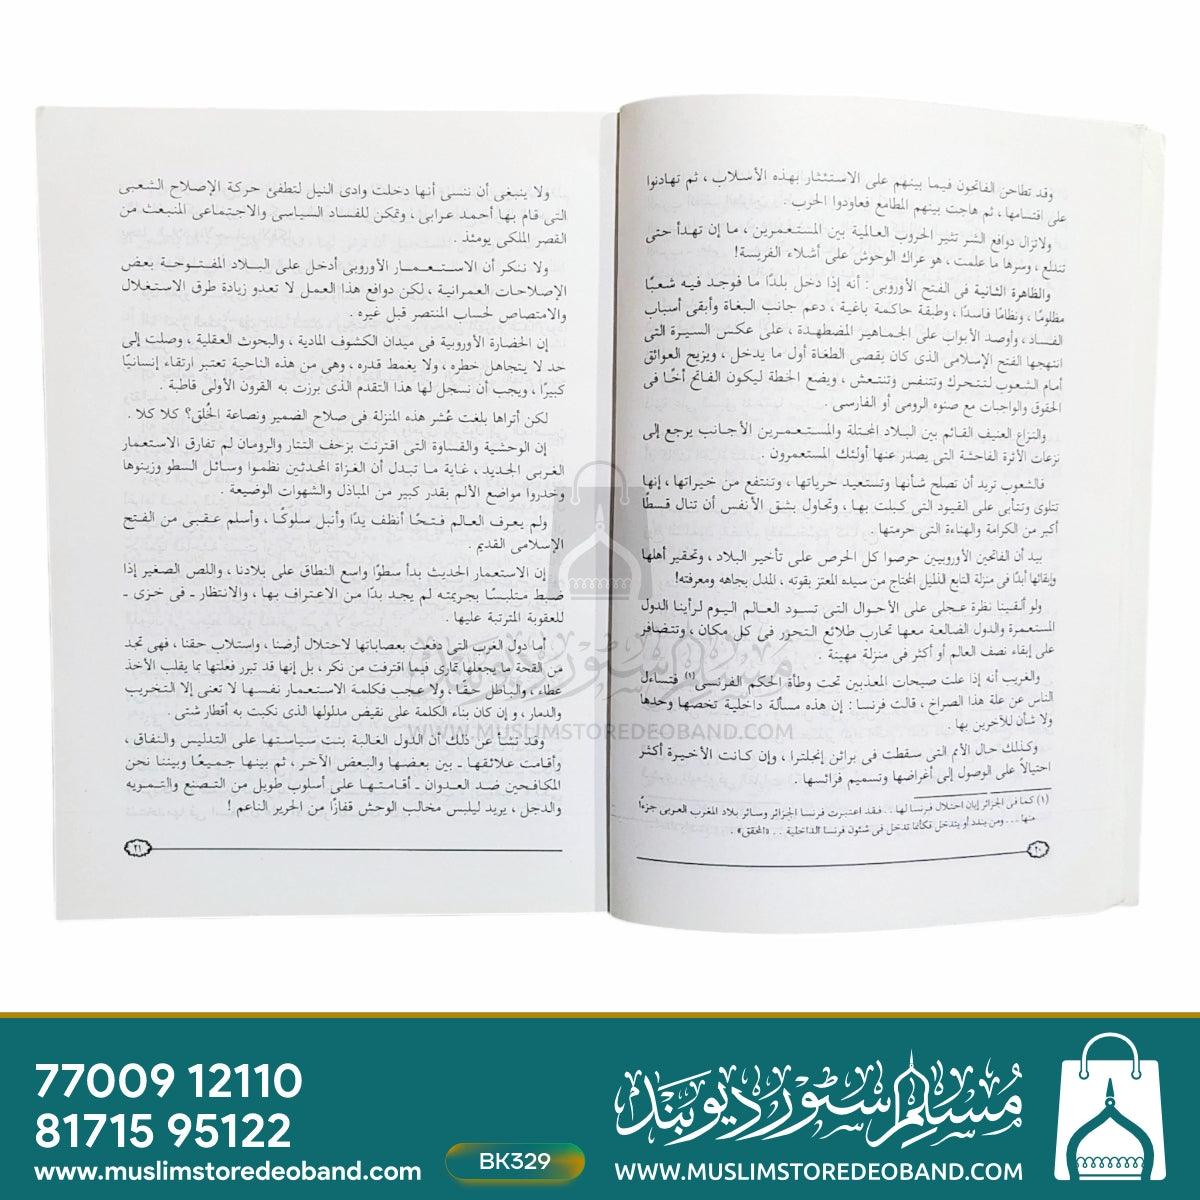 وقد تطاحن الفاتحون فيما بينهم على الاستئثار بهذه الأسلاب ، ثم تهادنوا
على اقتسامها ، ثم هاجت بينهم المطامع فعاودوا الحرب .
ولاتزال دوافع الشر تثير الحروب العالمية بين المستعمرين ، ما إن تهدأ حتى
تندلع ، وسرها ما علمت ، هو عراك الوحوش على أشلاء الفريسة!
والظاهرة الثانية فى الفتح الأوروبى : أنه إذا دخل بلدًا ما فوجد فيه شعبًا
مظلومًا ، ونظامًا فاسدًا ، وطبقة حاكمة باغية ، دعم جانب البغاة وأبقى أسباب
الفساد ، وأوصد الأبواب على الجماهير المضطهدة ، على عكس السيرة التى
انتهجها الفتح الإسلامى الذى كان يقصى الطغاة أول ما يدخل ، ويزيح العوائق
أمام الشعوب لتتحرك وتتنفس وتنتعش ، ويضع الخطة ليكون الفاتح أخًا فى
الحقوق والواجبات مع صنوه الرومى أو الفارسى .
والنزاع العنيف القائم بين البلاد المحتلة والمستعمرين الأجانب يرجع إلى
نزعات الأثرة الفاحشة التى يصدر عنها أولئك المستعمرون .
فالشعوب تريد أن تصلح شأنها وتستعيد حرياتها ، وتنتفع من خيراتها ، إنها
تتلوى وتتأبى على القيود التى كبلت بها ، وتحاول بشق الأنفس أن تنال قسطًا
أكبر من الكرامة والهناءة التى حرمتها .
بيد أن الفاتحين الأوروبيين حرصوا كل الحرص على تأخير البلاد ، وتحقير أهلها
وإبقائها أبدًا فى منزلة التابع الذليل المحتاج من سيده المعتز بقوته ، المدل بجاهه ومعرفته!
ولو ألقينا نظرة عجلى على الأحوال التى تسود العالم اليوم لرأينا الدول
المستعمرة والدول الضالعة معها تحارب طلائع التحرر فى كل مكان ، وتتضافر
على إبقاء نصف العالم أو أكثر فى منزلة مهينة .
والغريب أنه إذا علت صيحات المعذبين تحت وطأة الحكم الفرنسى(١) فتساءل
الناس عن علة هذا الصراخ ، قالت فرنسا : إن هذه مسألة داخلية تخصها وحدها
ولا شأن للآخرين بها .
وكذلك حال الأمم التى سقطت فى براثن إنجلترا ، وإن كانت الأخيرة أكثر
احتيالاً على الوصول إلى أغراضها وتسميم فرائسها .
(١) كما فى الجزائر إبان احتلال فرنسا لها . . . فقد اعتبرت فرنسا الجزائر وسائر بلاد المغرب العربى جزءًا
منها . . . ومن يندد أو يتدخل فكأنما تدخل فى شئون فرنسا الداخلية . . . «المحقق» .
٢٠
ولا ينبغى أن ننسى أنها دخلت وادى النيل لتطفئ حركة الإصلاح الشعبى
التى قام بها أحمد عرابى ، وتمكن للفساد السياسى والاجتماعى المنبعث من
القصر الملكى يومئذ .
ولا ننكر أن الاستعمار الأوروبى أدخل على البلاد المفتوحة بعض
الإصلاحات العمرانية ، لكن دوافع هذا العمل لا تعدو زيادة طرق الاستغلال
والامتصاص لحساب المنتصر قبل غيره .
إن الحضارة الأوروبية فى ميدان الكشوف المادية ، والبحوث العقلية ، وصلت إلى
حد لا يتجاهل خطره ، ولا يغمط قدره ، وهى من هذه الناحية تعتبر ارتقاء إنسانيًا
كبيرًا ، ويجب أن نسجل لها هذا التقدم الذى برزت به القرون الأولى قاطبة .
لكن أتراها بلغت عُشر هذه المنزلة فى صلاح الضمير ونصاعة الخُلق؟ كلا كلا .
إن الوحشية والقساوة التى اقترنت بزحف التتار والرومان لم تفارق الاستعمار
الغربى الجديد ، غاية ما تبدل أن الغزاة المحدثين نظموا وسائل السطو وزينوها
وخدروا مواضع الألم بقدر كبير من المباذل والشهوات الوضيعة .
ولم يعرف العالم فتحًا أنظف يدًا وأنبل سلوكًا ، وأسلم عقبى من الفتح
الإسلامى القديم .
إن الاستعمار الحديث بدأ سطوًا واسع النطاق على بلادنا ، واللص الصغير إذا
ضبط متلبسًا بجريمته لم يجد بدًا من الاعتراف بها ، والانتظار ـ فى خزى ـ
للعقوبة المترتبة عليها .
أما دول الغرب التى دفعت بعصاباتها لاحتلال أرضنا ، واستلاب حقنا ، فهى تجد
من القحة ما يجعلها تمارى فيما اقترفت من نكر ، بل إنها قد تبرر فعلتها بما يقلب الأخذ
عطاء ، والباطل حقا ، ولا عجب فكلمة الاستعمار نفسها لا تعنى إلا التخريب
والدمار ، و إن كان بناء الكلمة على نقيض مدلولها الذى نكبت به أقطار شتى .
وقد نشأ عن ذلك أن الدول الغالبة بنت سياستها على التدليس والنفاق ،
وأقامت علائقها ـ بين بعضها والبعض الآخر ، ثم بينها جميعًا وبيننا نحن
المكافحين ضد العدوان ـ أقامتها على أسلوب طويل من التصنع والتمويه
والدجل ، يريد ليلبس مخالب الوحش قفازًا من الحرير الناعم !
٢١
مسلم سٹور دیوبند
WWW.MUSLIMSTOREDEOBAND.COM
77009 12110
81715 95122
www.muslimstoredeoband.com
BK329
مسلم سٹور دیوبند
WWW.MUSLIMSTOREDEOBAND.COM